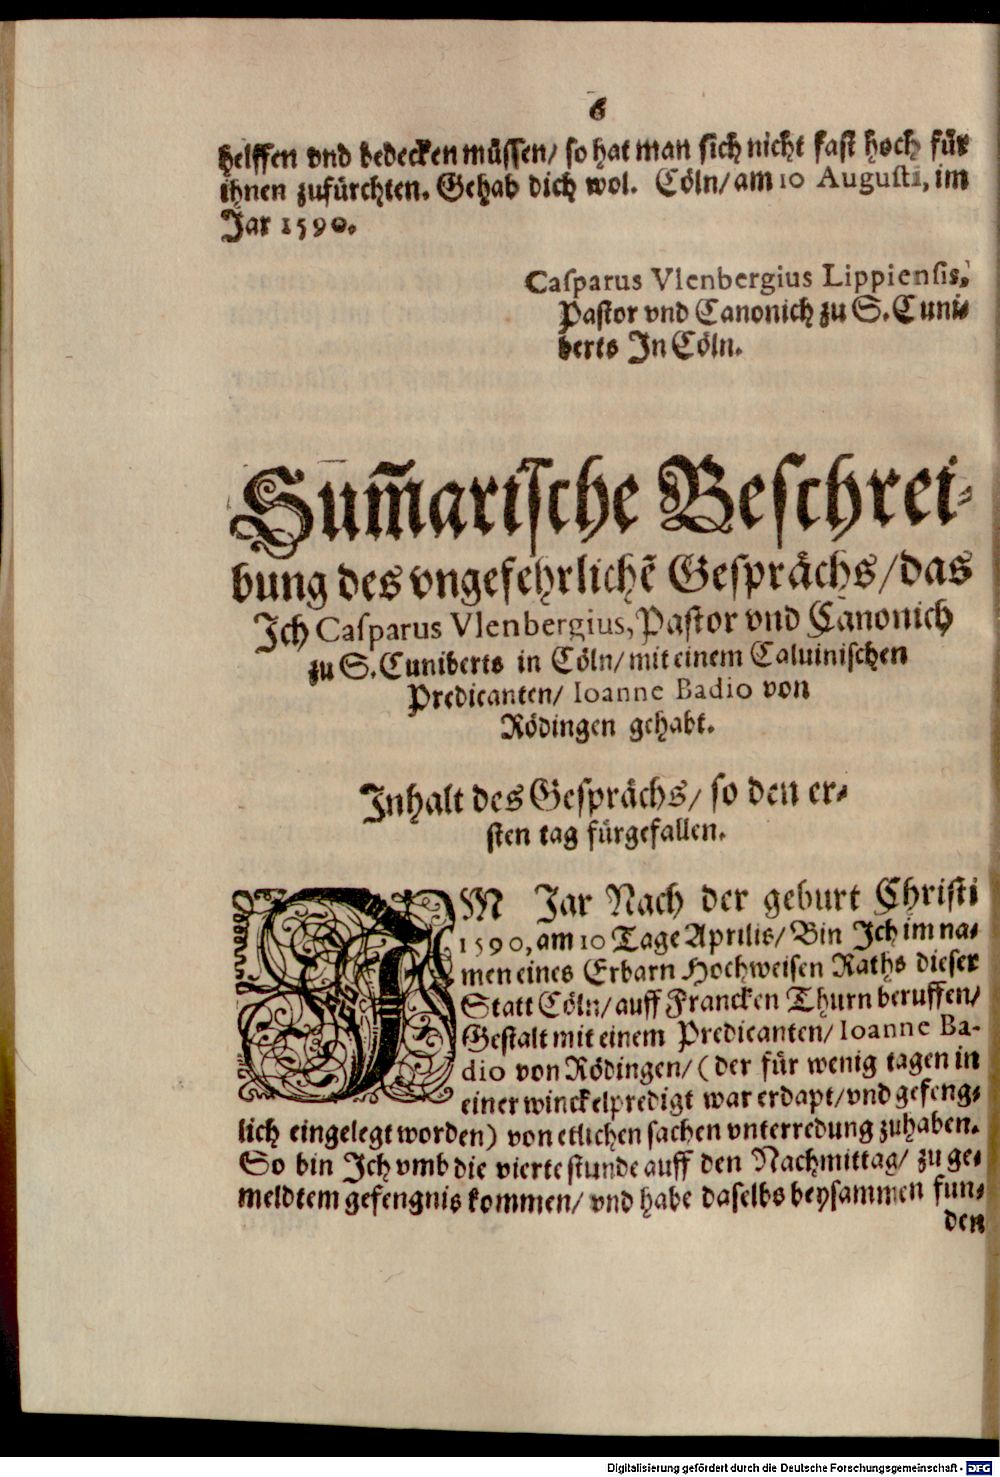 6
helffen vnd bedecken müssen/ so hat man sich nicht fast hoch für
ihnen zufürchten. Gehab dich wol. Cöln/ am 10 Augusti, im
Jar 1590.
Casparus Vlenbergius Lippiensis,
Pastor vnd Canonich zu S. Cuni-
berts In Cöln.
Sum̄arische Beschrei-
bung des vngefehrlichē Gesprächs/ das
Ich Casparus Vlenbergius, Pastor vnd Canonich
zu S. Cuniberts in Cöln/ mit einem Caluinischen
Predicanten/ Ioanne Badio von
Rödingen gehabt.
Inhalt des Gesprächs/ so den er-
sten tag fürgefallen.
IM Jar Nach der geburt Christi
1590, am 10 Tage Aprilis/ Bin Ich im na-
men eines Erbarn Hochweisen Raths dieser
Statt Cöln/ auff Francken Thurn beruffen/
Gestalt mit einem Predicanten/ Ioanne Ba-
dio von Rödingen/ (der für wenig tagen in
einer winckelpredigt war erdapt/ vnd gefeng-
lich eingelegt worden) von etlichen sachen vnterredung zuhaben.
So bin Ich vmb die vierte stunde auff den Nachmittag/ zu ge-
meldtem gefengnis kommen/ vnd habe daselbs beysammen fun-
den
Digitalisierung gefördert durch die Deutsche Forschungsgemeinschaft - DFG